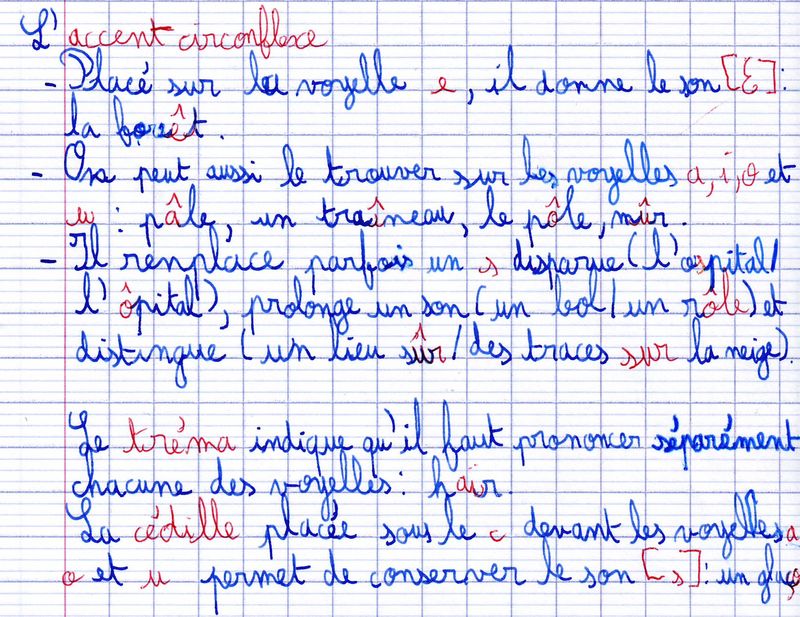 L'accent circonflexe
- Placé sur la voyelle e, il donne le son [ɛ] :
la forêt.
- On peut aussi le trouver sur les voyelles a, i, o et
u : pâle, un traîneau, le pôle, mûr.
- Il remplace parfois un s disparue (l'ospital/
l'ôpital), prolonge un son (un bol/un rôle) et
distingue (un lieu sûr/des traces sur la neige).
Le tréma indique qu'il faut prononcer séparément
chacune des voyelles : haïr.
La cédille placée sous le c devant les voyelles a
o et u permet de conserver le son [s] : un glaço